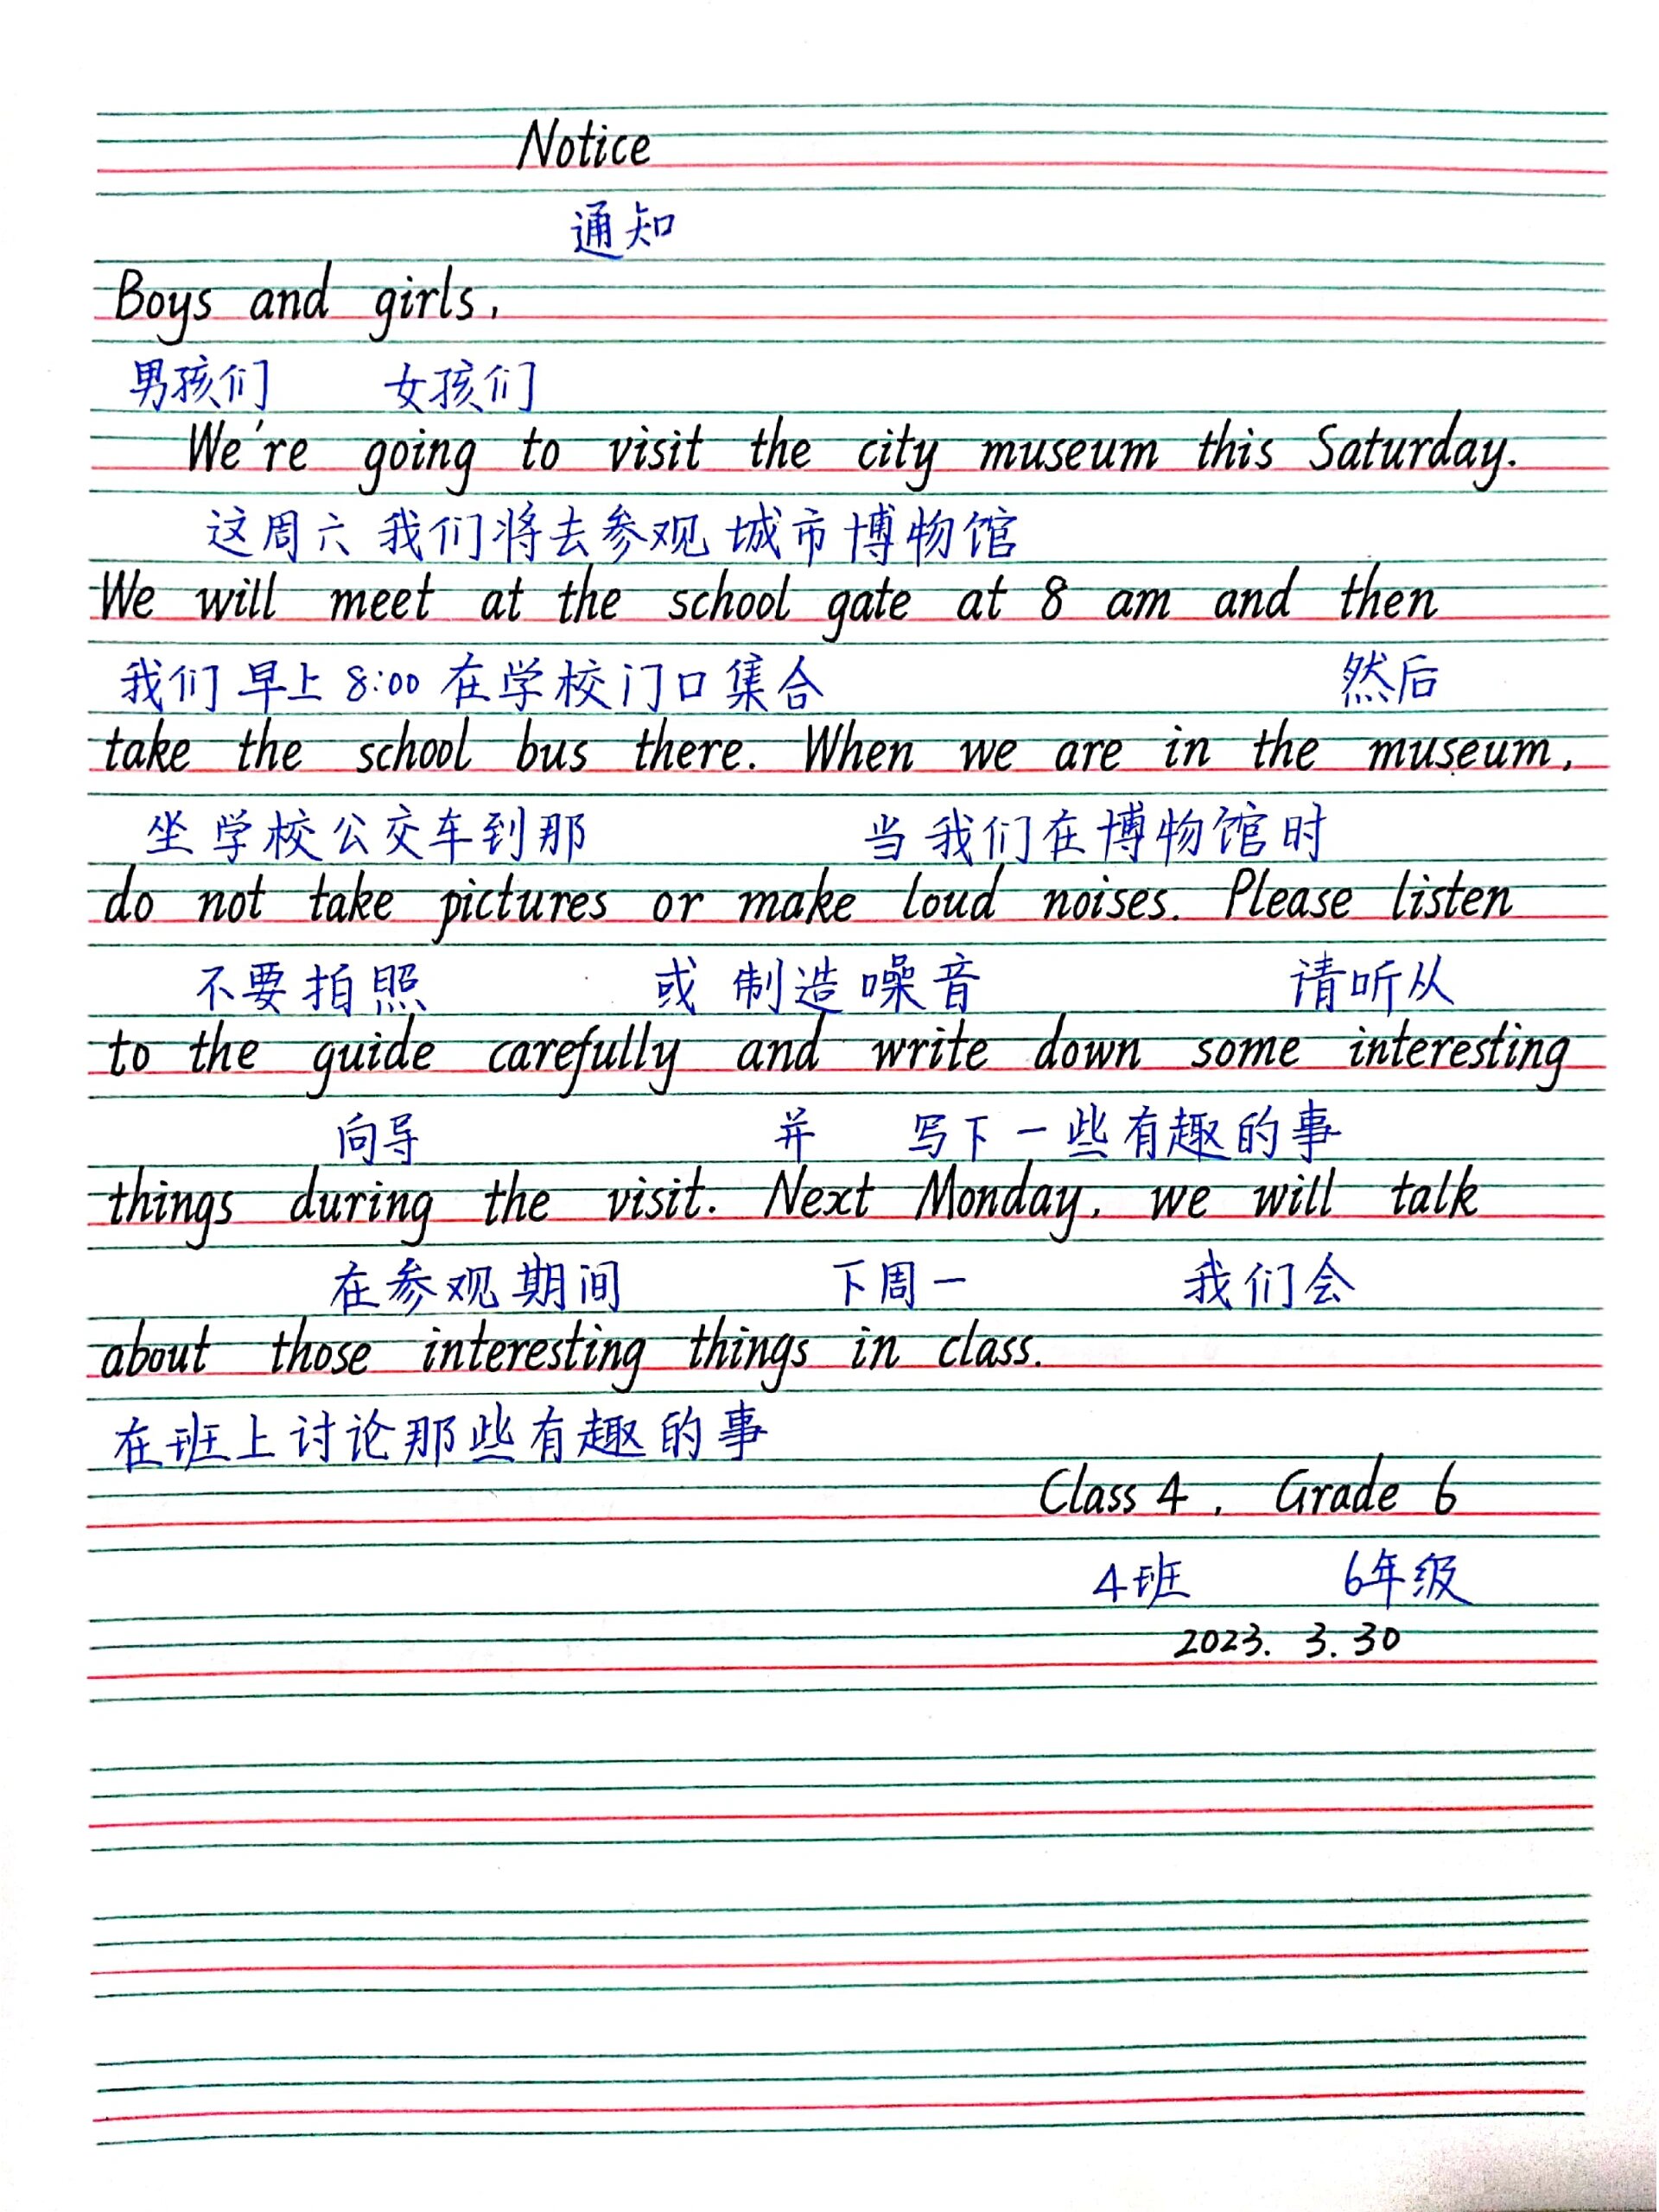 Notice
通知
Boys and girls,
男孩们 女孩们
We're going to visit the city museum this Saturday.
这周六我们将去参观城市博物馆
We will meet at the school gate at 8 am and then
我们早上8:00在学校门口集合 然后
take the school bus there. When we are in the museum,
坐学校公交车到那 当我们在博物馆时
do not take pictures or make loud noises. Please listen
不要拍照 或制造噪音 请听从
to the guide carefully and write down some interesting
向导 并 写下一些有趣的事
things during the visit. Next Monday, we will talk
在参观期间 下周一 我们会
about those interesting things in class.
在班上讨论那些有趣的事
Class 4, Grade 6
4班 6年级
2023. 3. 30